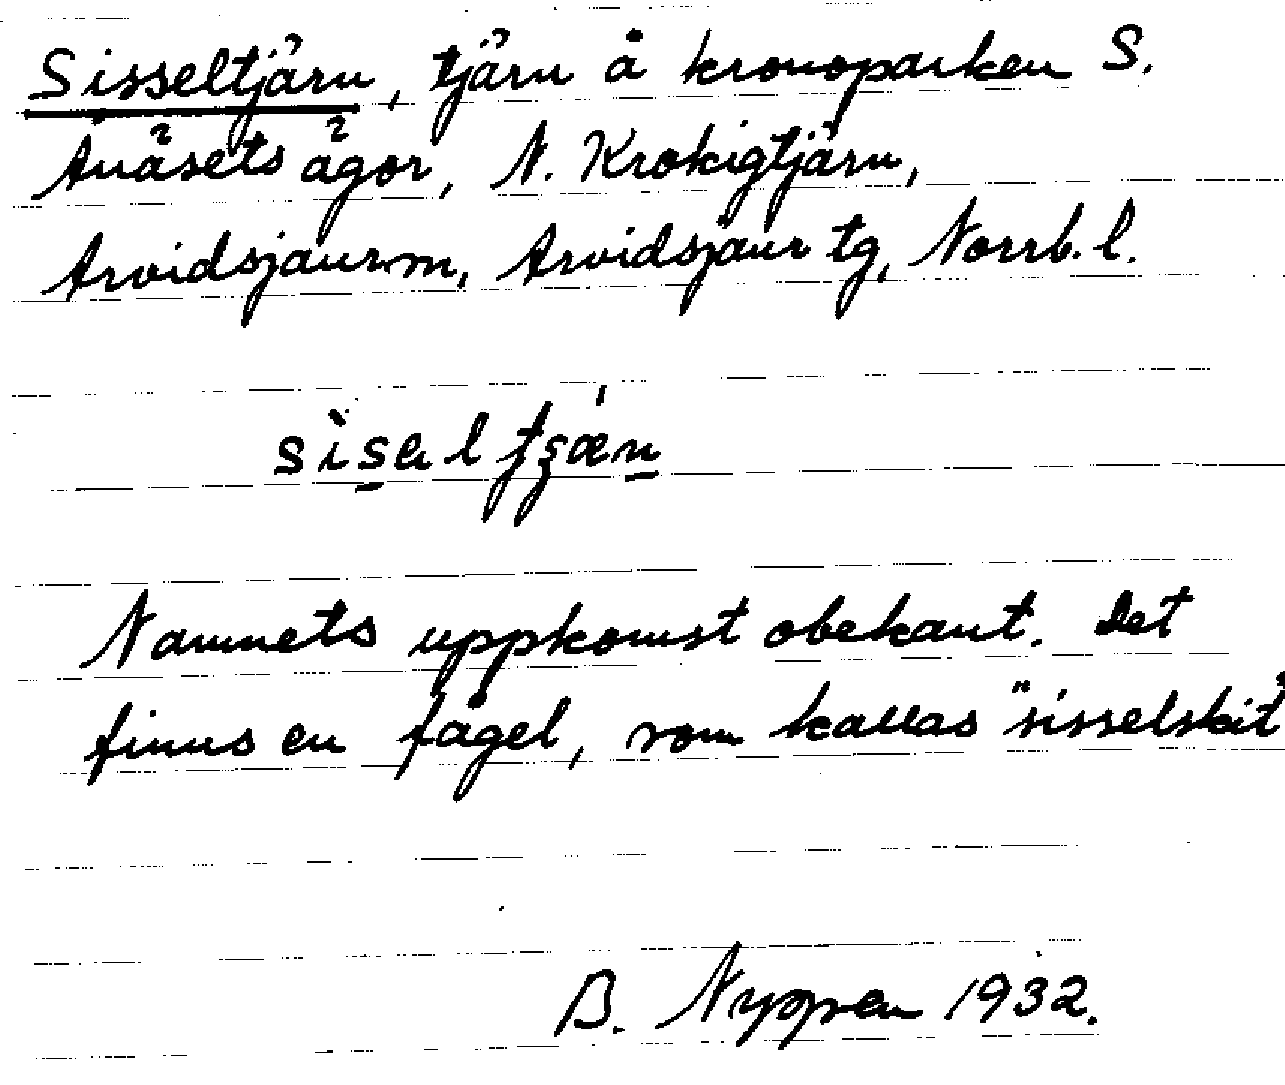 Sisseltjärn, tjärn å kronoparken S.
Änäsets ägor, N. Krokigtjärn,
Arvidsjaur sn, Arvidsjaur tg, Norrb. l.
Namnets uppkomst obekant. Det
finns en fågel, som kallas "sisselskit"
B. Nygren 1932.